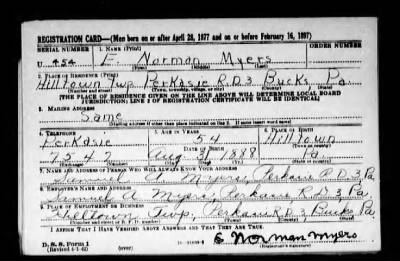 REGISTRATION CARD—(Men born on or after April 28, 1877 and on or before February 16, 1897)
SERIAL NUMBER 1. NAME (Print) ORDER NUMBER
U 454 E. Norman Myers
(First) (Middle) (Last)
2. PLACE OF RESIDENCE (Print)
Hilltown Twp Perkasie R.D.3 Bucks Pa.
(Number and street) (Town, township, village, or city) (County) (State)
[THE PLACE OF RESIDENCE GIVEN ON THE LINE ABOVE WILL DETERMINE LOCAL BOARD
JURISDICTION; LINE 2 OF REGISTRATION CERTIFICATE WILL BE IDENTICAL]
3. MAILING ADDRESS
Same
[Mailing address if other than place indicated on line 2. If same insert word same]
4. TELEPHONE 5. AGE IN YEARS 6. PLACE OF BIRTH
Perkasie 54 Hilltown
DATE OF BIRTH
7542 Aug. 31 1888 Pa.
7. NAME AND ADDRESS OF PERSON WHO WILL ALWAYS KNOW YOUR ADDRESS
Samuel A. Myers, Perkasie R.D.3 Pa.
8. EMPLOYER'S NAME AND ADDRESS
Samuel A. Myers, Perkasie R.D.3, Pa.
9. PLACE OF EMPLOYMENT OR BUSINESS
Hilltown Twp, Perkasie R.D.3 Bucks Pa.
(Number and street or R. F. D. number) (Town) (County) (State)
I AFFIRM THAT I HAVE VERIFIED ABOVE ANSWERS AND THAT THEY ARE TRUE.
E. Norman Myers
D. S. S. Form 1
(Revised 4-1-42) (over) (Registrant's signature)